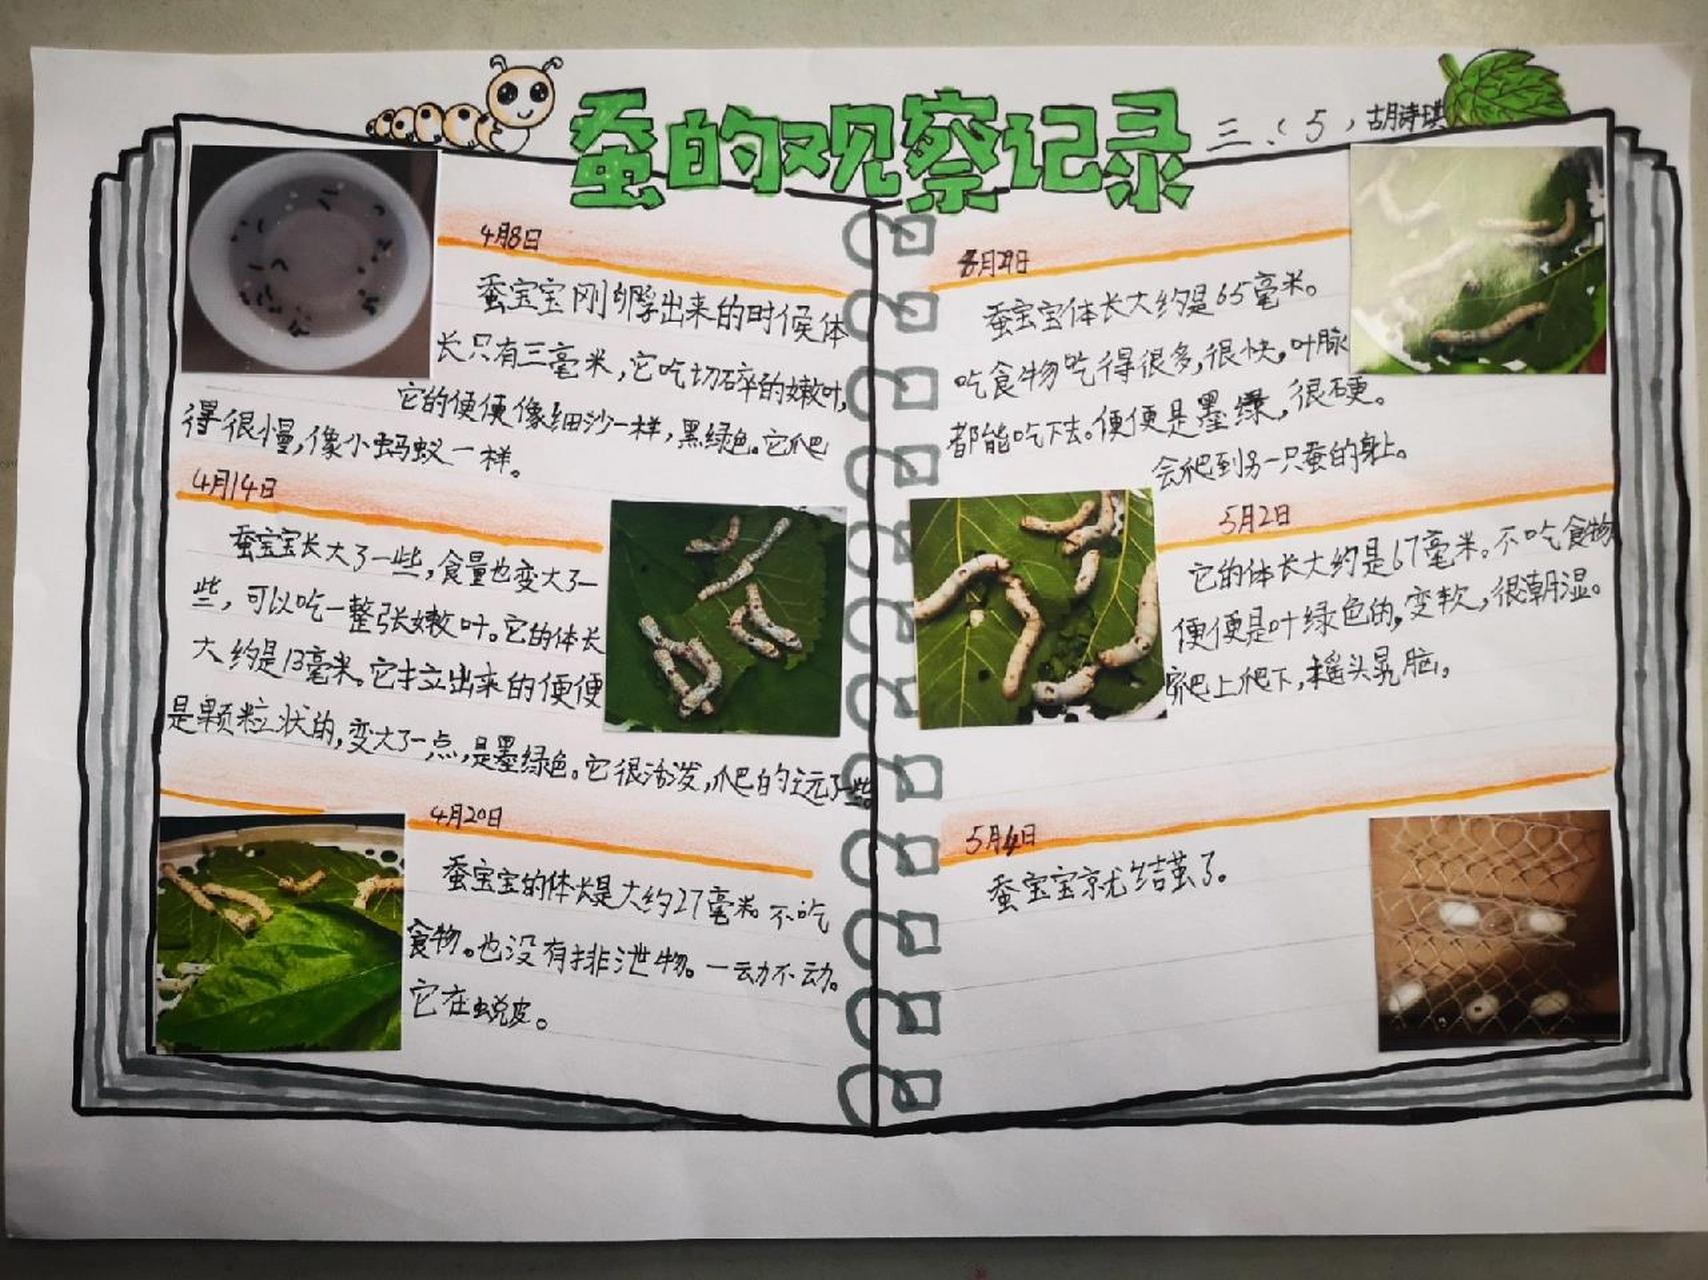 蚕的观察记录
三、(5)胡诗琪
4月8日
蚕宝宝刚孵出来的时候体
长只有三毫米,它吃切碎的嫩叶,
它的便便像细沙一样,黑绿色。它爬
得很慢,像小蚂蚁一样。
4月14日
蚕宝宝长大了一些,食量也变大了一
些,可以吃一整张嫩叶。它的体长
大约是13毫米。它拉出来的便便
是颗粒状的,变大了一点,是墨绿色。它很活泼,爬的远了一些。
4月20日
蚕宝宝的体长是大约27毫米。不吃
食物。也没有排泄物。一动不动。
它在蜕皮。
月29日
蚕宝宝体长大约是65毫米。
吃食物吃得很多,很快,叶脉
都能吃下去。便便是墨绿,很硬。
会爬到另一只蚕的身上。
5月2日
它的体长大约是67毫米。不吃食物
便便是叶绿色的,变软,很潮湿。
爬上爬下,摇头晃脑,
5月4日
蚕宝宝就结茧了。